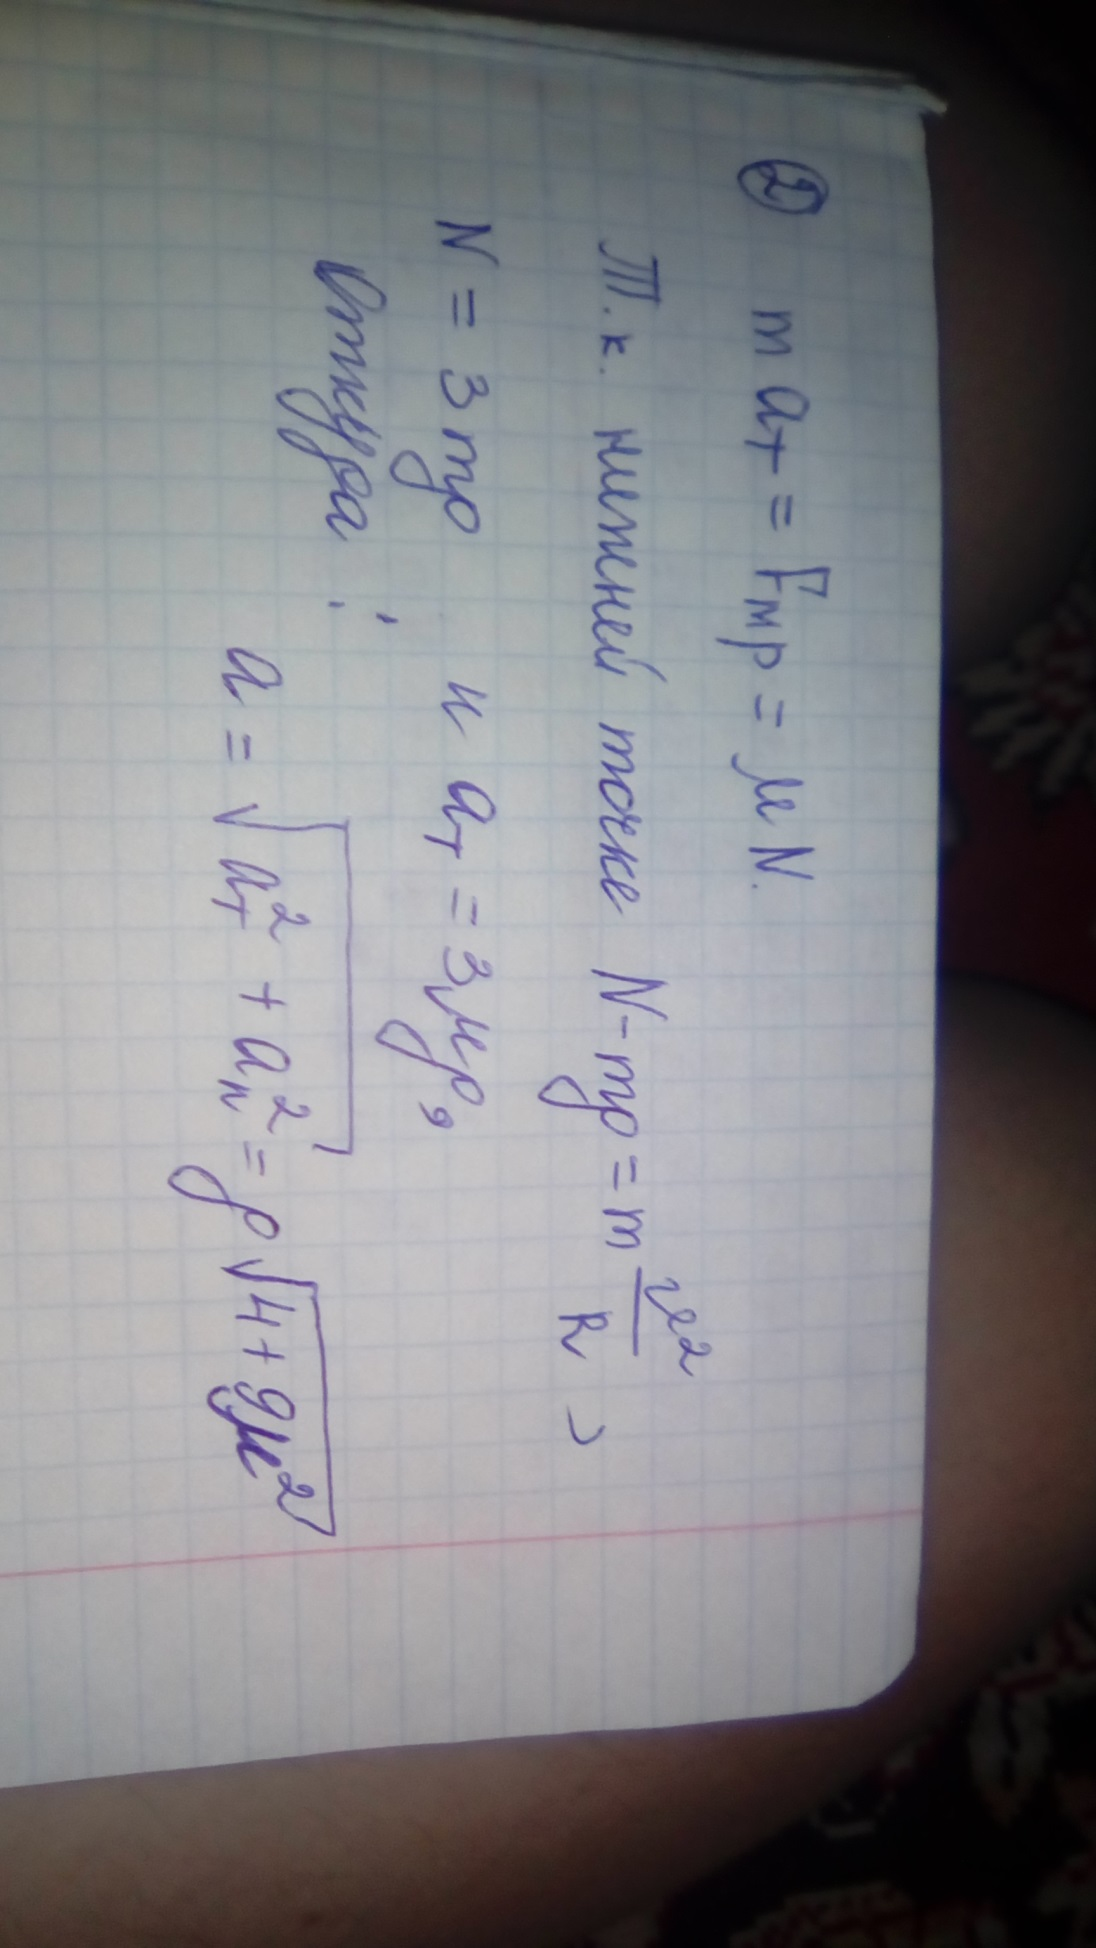 ② m aτ = Fтр = μN.
Т.к. нижней точке N - mg = m v²/R,
N = 3mg и aτ = 3μg,
Откуда:
a = √(aτ² + aₙ²) = g√(4 + 9μ²)